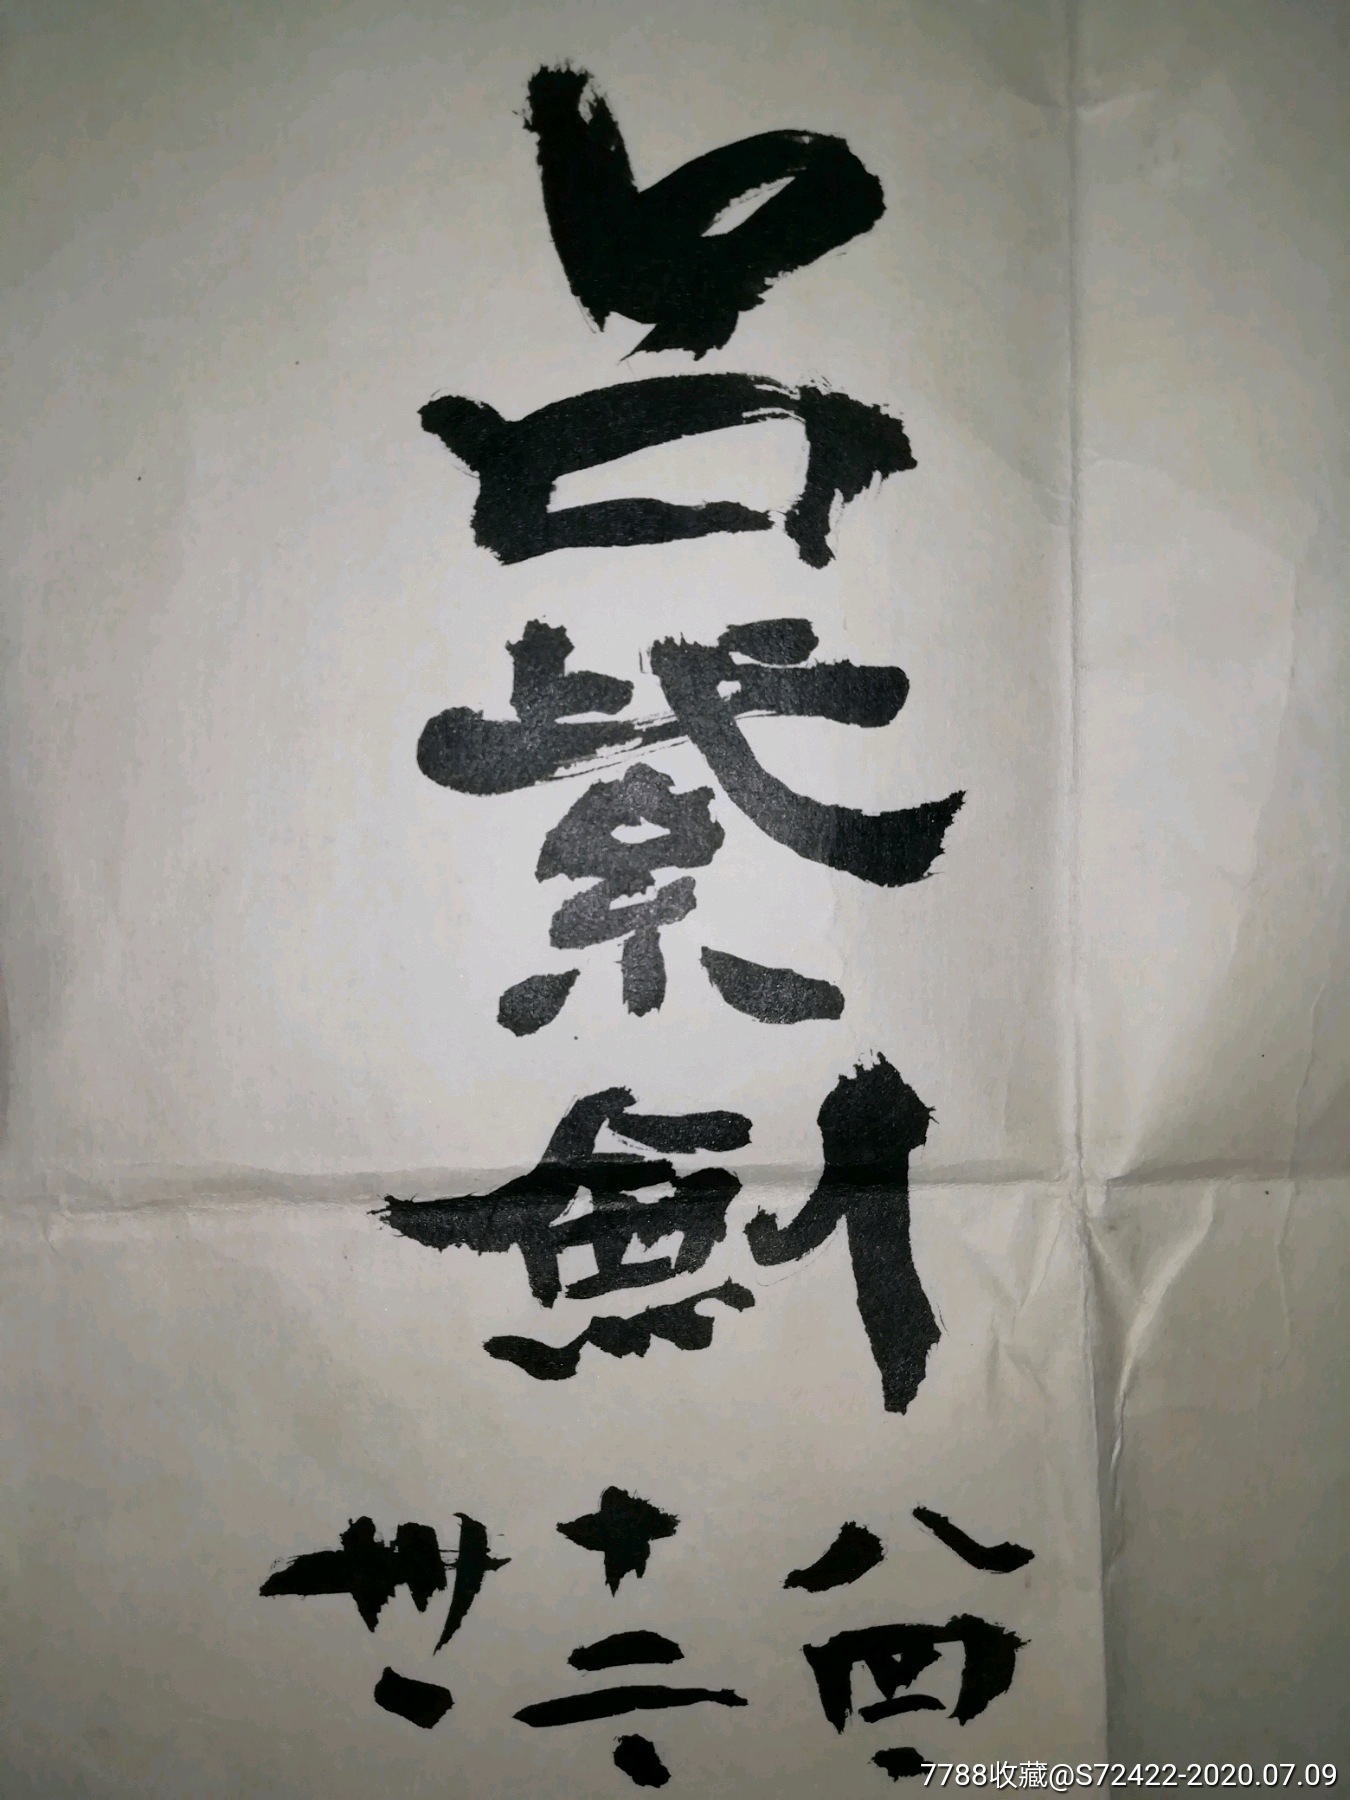 吕紫劍
八四.
十二.
卅.
7788收藏@S72422-2020.07.09